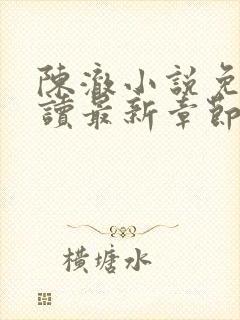 陳澈小說免
讀最新章節
橫塘水